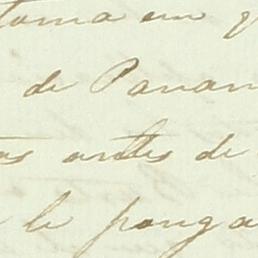 toma em q
de Panam
as antes de
le ponga